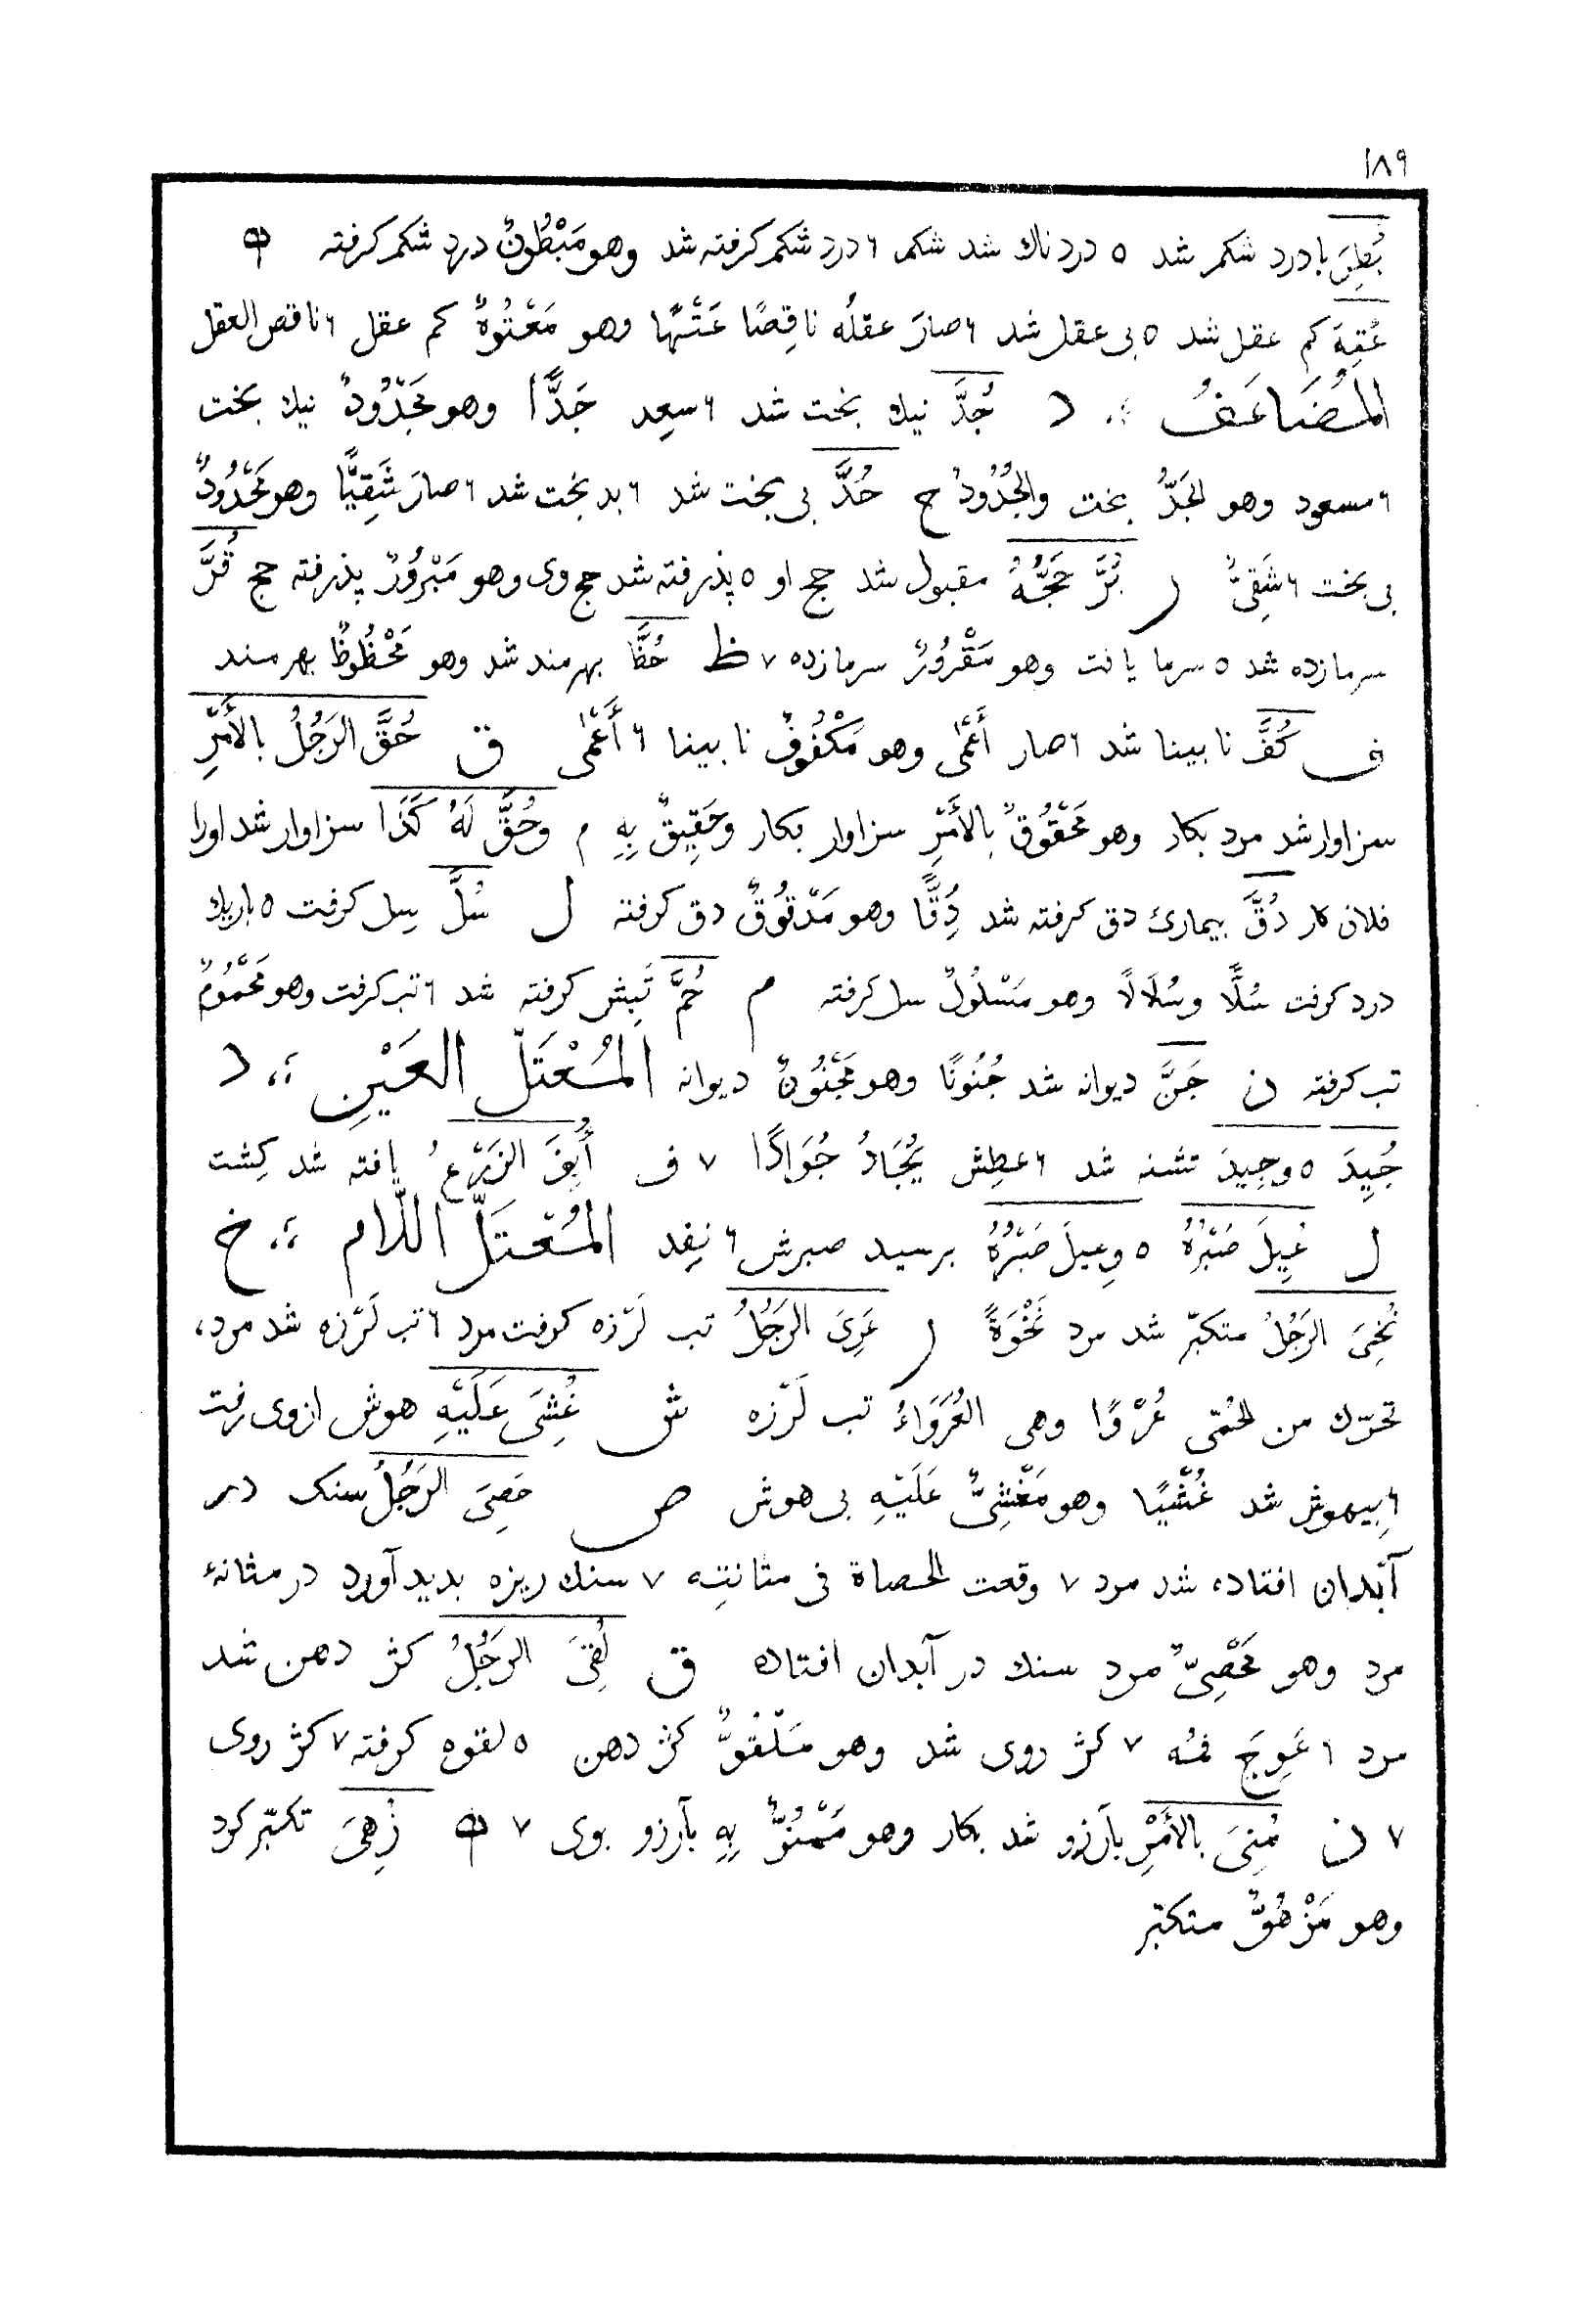 ١٨٩
بُطِنَ با درد شکم شد ٥ دردناك شد شکم ٦ درد شکم گرفته شد وهو مَبْطُونٌ درد شکم گرفته ه
عُتِهَ کم عقل شد ٥ بی عقل شد ٦ صارَ عقلُه ناقِصًا عَتَهًا وهو مَعْتُوهٌ کم عقل ٦ ناقص العقل
المُضَاعَفُ ؞ د جُدَّ نیك بخت شد ٦ سعِد جَدًّا وهو مَجْدُودٌ نیك بخت
٦ مسعود وهو الجَدُّ بخت والجُدُودُ ج حُدَّ بی بخت شد ٦ بد بخت شد ٦ صارَ شَقِيًّا وهو مَحْدُودٌ
بی بخت ٦ شَقِیٌّ ر بُرَّ حَجُّهُ مقبول شد حج او ٥ پذرفته شد حج وی وهو مَبْرُورٌ پذرفته حج قُرَّ
سرمازده شد ٥ سرما یافت وهو مَقْرُورٌ سرمازده ٧ ظ حُظَّ بهرمند شد وهو مَحْظُوظٌ بهرمند
ف کُفَّ نابینا شد ٦ صار أَعْمٰی وهو مَکْفُوفٌ نابینا ٦ أَعْمٰی ق حُقَّ الرَجُلُ بالأَمْرِ
سزاوار شد مرد بکار وهو مَحْقُوقٌ بالأَمْرِ سزاوار بکار وحَقِيقٌ بِهِ م وحُقَّ لَهُ كَذَا سزاوار شد اورا
فلان کار دُقَّ بیماریٔ دق گرفته شد دِقًّا وهو مَدْقُوقٌ دق گرفته ل سُلَّ سِل گرفت ٥ باریك
درد گرفت سُلًّا وسُلَالًا وهو مَسْلُولٌ سل گرفته م حُمَّ تَبِش گرفته شد ٦ تب گرفت وهو مَحْمُومٌ
تب گرفته ن جُنَّ دیوانه شد جُنُونًا وهو مَجْنُونٌ دیوانه المُعْتَلّ العَيْنِ ؞ د
جُيِدَ ٥ وجِيدَ تشنه شد ٦ عطِش يُجَادُ جُوَادًا ٧ ف أُيِفَ الزَرْعُ یافته شد کِشت
ل عُيِلَ صَبْرُهُ ٥ وعِيلَ صَبْرُهُ برسید صبرش ٦ نفِد المُعْتَلّ اللّام ؞ خ
نُخِيَ الرَجُلُ متکبّر شد مرد نَخْوَةً ر عُرِيَ الرَجُلُ تب لَرْزه گرفت مرد ٦ تب لَرْزه شد مرد،
تحرّك من الحُمّى عُرْوًا وهی العُرَوَاءُ تب لَرْزه ش غُشِيَ عَلَيْهِ هوش ازوی رفت
٦ بیهوش شد غُشْيًا وهو مَغْشِيٌّ عَلَيْهِ بی هوش ص حُصِيَ الرَجُلُ سنك در
آبْدان افتاده شد مرد ٧ وقعت الحصاة فی مثانتِه ٧ سنك ریزه بدید آورد در مثانهٔ
مرد وهو مَحْصِیٌّ مرد سنك در آبدان افتاده ق لُقِيَ الرَجُلُ کژ دهن شد
مرد ٦ عَوِجَ فمُه ٧ کژ روی شد وهو مَلْقُوٌّ کژ دهن ٥ لقوه گرفته ٧ کژ روی
٧ ن مُنِيَ بالأَمْرِ بآرزو شد بکار وهو مَمْنُوٌّ بِهِ بآرزو بوی ٧ ه زُهِيَ تکبّر کرد
وهو مَزْهُوٌّ متکبّر